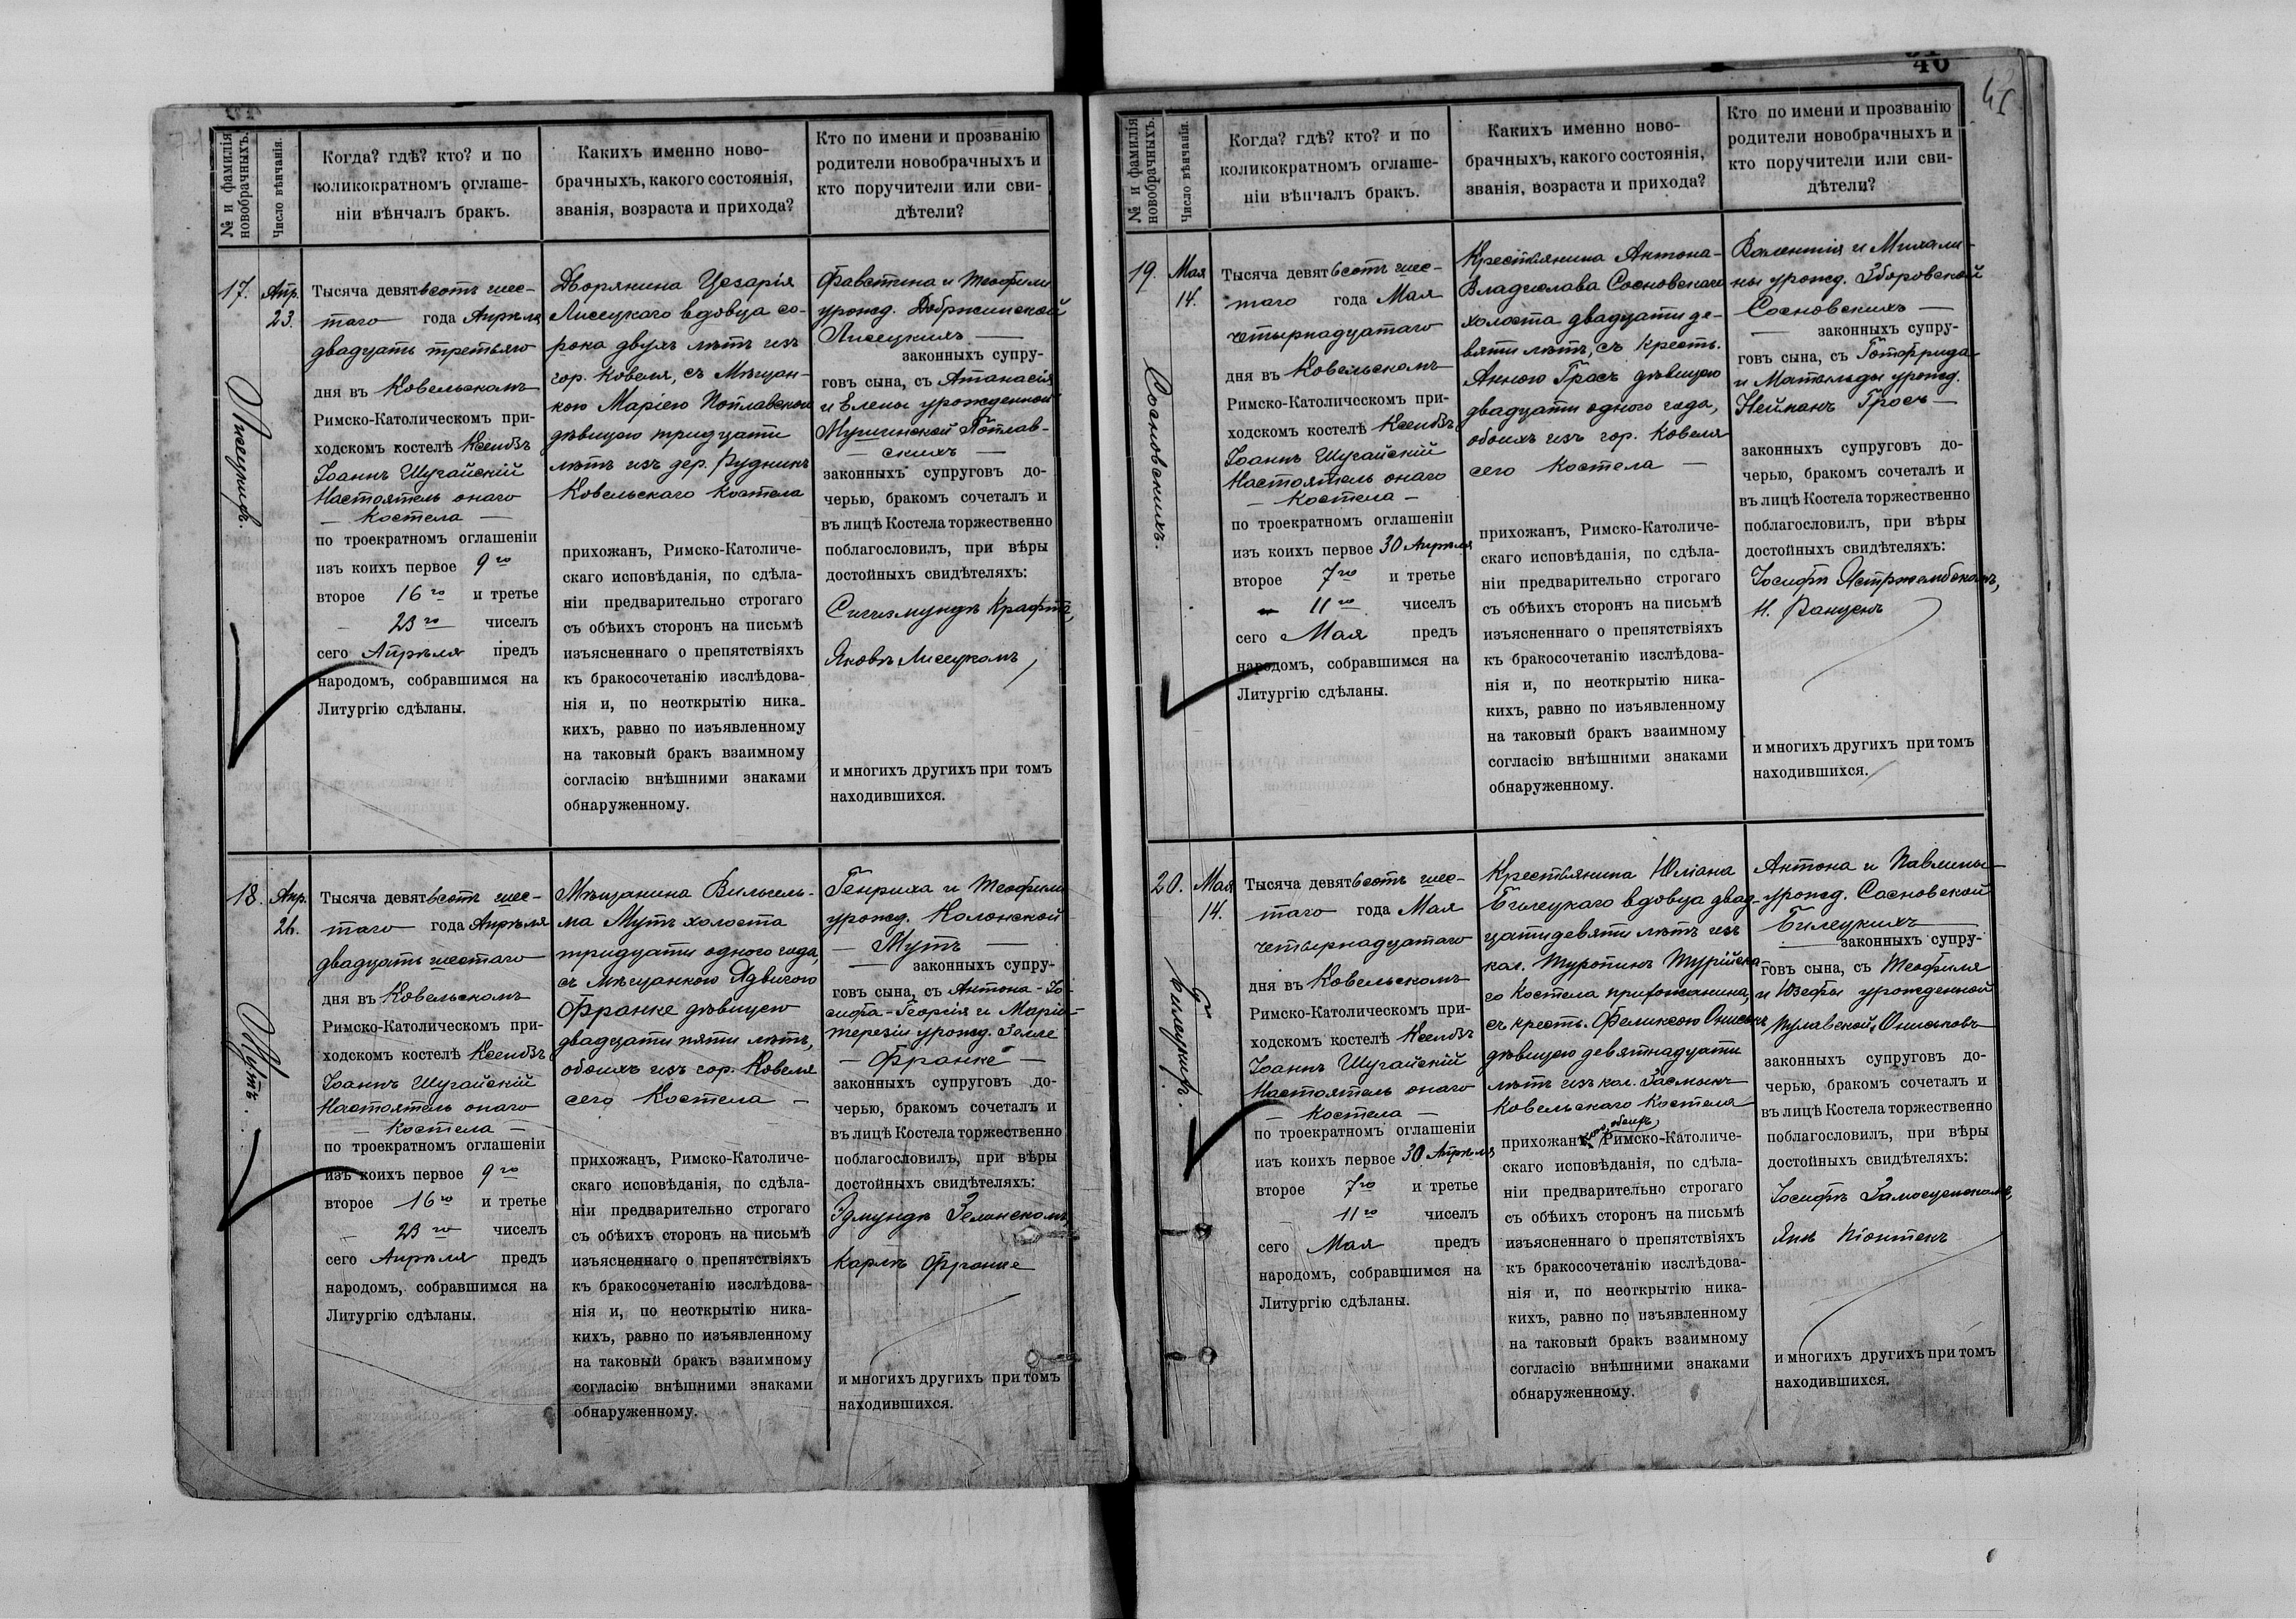 № и фамилія новобрачныхъ.
Число вѣнчанія.
Когда? гдѣ? кто? и по
коликократномъ оглаше-
ніи вѣнчалъ бракъ.
Какихъ именно ново-
брачныхъ, какого состоянія,
званія, возраста и прихода?
Кто по имени и прозванію
родители новобрачныхъ и
кто поручители или сви-
дѣтели?
17.
Лисецкихъ.
Апр.
23.
Тысяча девятьсотъ шес-
таго года Апрѣля
двадцать третьяго
дня въ Ковельскомъ
Римско-Католическомъ при-
ходскомъ костелѣ Ксендзъ
Іоаннъ Шугайскій
Настоятель онаго
— Костела —
по троекратномъ оглашеніи
изъ коихъ первое 9го
второе 16го и третье
23го чиселъ
сего Апрѣля предъ
народомъ, собравшимся на
Литургію сдѣланы.
Дворянина Цезарія
Лисецкаго вдовца со-
рока двухъ лѣтъ изъ
гор. Ковеля, съ Мѣщан-
кою Маріею Поплавскою
дѣвицею тридцати
лѣтъ изъ дер. Рудникъ
Ковельскаго Костела
прихожанъ, Римско-Католиче-
скаго исповѣданія, по сдѣла-
ніи предварительно строгаго
съ обѣихъ сторонъ на письмѣ
изъясненнаго о препятствіяхъ
къ бракосочетанію изслѣдова-
нія и, по неоткрытію ника-
кихъ, равно по изъявленному
на таковый бракъ взаимному
согласію внѣшними знаками
обнаруженному.
Фавстина и Теофили
урожд. Добржинской
Лисецкихъ —
законныхъ супру-
говъ сына, съ Атанасія
и Елены урожденной
Поплав-
— скихъ —
законныхъ супруговъ до-
черью, бракомъ сочеталъ и
въ лицѣ Костела торжественно
поблагословилъ, при вѣры
достойныхъ свидѣтеляхъ:
Сигизмундѣ Крафтъ,
Яковѣ Лисецкомъ,
и многихъ другихъ при томъ
находившихся.
18.
Мутъ.
Апр.
26.
Тысяча девятьсотъ шес-
таго года Апрѣля
двадцать шестаго
дня въ Ковельскомъ
Римско-Католическомъ при-
ходскомъ костелѣ Ксендзъ
Іоаннъ Шугайскій
Настоятель онаго
— Костела —
по троекратномъ оглашеніи
изъ коихъ первое 9го
второе 16го и третье
— 23го чиселъ
сего Апрѣля предъ
народомъ, собравшимся на
Литургію сдѣланы.
Мѣщанина Вильгель-
ма Мутъ холоста
тридцати одного года,
съ Мѣщанкою Ядвигою
Франке дѣвицею
двадцати пяти лѣтъ,
обоихъ изъ гор. Ковеля
сего Костела —
прихожанъ, Римско-Католиче-
скаго исповѣданія, по сдѣла-
ніи предварительно строгаго
съ обѣихъ сторонъ на письмѣ
изъясненнаго о препятствіяхъ
къ бракосочетанію изслѣдова-
нія и, по неоткрытію ника-
кихъ, равно по изъявленному
на таковый бракъ взаимному
согласію внѣшними знаками
обнаруженному.
Генриха и Теофили
урожд. Колонской
— Мутъ —
законныхъ супру-
говъ сына, съ Антона-Іо-
сифа-Георгія и Маріи-
Терезіи урожд. Залле
— Франке —
законныхъ супруговъ до-
черью, бракомъ сочеталъ и
въ лицѣ Костела торжественно
поблагословилъ, при вѣры
достойныхъ свидѣтеляхъ:
Эдмундѣ Зелинскомъ,
Карлѣ Франке
и многихъ другихъ при томъ
находившихся.
46
№ и фамилія новобрачныхъ.
Число вѣнчанія.
Когда? гдѣ? кто? и по
коликократномъ оглаше-
ніи вѣнчалъ бракъ.
Какихъ именно ново-
брачныхъ, какого состоянія,
званія, возраста и прихода?
Кто по имени и прозванію
родители новобрачныхъ и
кто поручители или сви-
дѣтели?
19.
Сосновскихъ.
Мая
14.
Тысяча девятьсотъ шес-
таго года Мая
четырнадцатаго
дня въ Ковельскомъ
Римско-Католическомъ при-
ходскомъ костелѣ Ксендзъ
Іоаннъ Шугайскій
Настоятель онаго
— Костела —
по троекратномъ оглашеніи
изъ коихъ первое 30 Апрѣля
второе 7го и третье
11го чиселъ
сего Мая предъ
народомъ, собравшимся на
Литургію сдѣланы.
Крестьянина Антона-
Владислава Сосновскаго
холоста двадцати де-
вяти лѣтъ, съ Кресть.
Анною Гросъ дѣвицею
двадцати одного года,
обоихъ изъ гор. Ковеля
сего Костела —
прихожанъ, Римско-Католиче-
скаго исповѣданія, по сдѣла-
ніи предварительно строгаго
съ обѣихъ сторонъ на письмѣ
изъясненнаго о препятствіяхъ
къ бракосочетанію изслѣдова-
нія и, по неоткрытію ника-
кихъ, равно по изъявленному
на таковый бракъ взаимному
согласію внѣшними знаками
обнаруженному.
Валентія и Михали-
ны урожд. Зборовской
Сосновскихъ —
законныхъ супру-
говъ сына, съ Готфрида
и Матильды урожд.
Нейманъ Гросъ —
законныхъ супруговъ до-
черью, бракомъ сочеталъ и
въ лицѣ Костела торжественно
поблагословилъ, при вѣры
достойныхъ свидѣтеляхъ:
Іосифѣ Ястржембскомъ,
И. Ванценъ
и многихъ другихъ при томъ
находившихся.
20.
Билецкихъ.
Мая
14.
Тысяча девятьсотъ шес-
таго года Мая
четырнадцатаго
дня въ Ковельскомъ
Римско-Католическомъ при-
ходскомъ костелѣ Ксендзъ
Іоаннъ Шугайскій
Настоятель онаго
— Костела —
по троекратномъ оглашеніи
изъ коихъ первое 30 Апрѣля
второе 7го и третье
11го чиселъ
сего Мая предъ
народомъ, собравшимся на
Литургію сдѣланы.
Крестьянина Юліана
Билецкаго вдовца двад-
цати девяти лѣтъ изъ
кол. Туропинъ Турійска-
го Костела прихожанина,
съ кресть. Феликсою Ониськъ
дѣвицею девятнадцати
лѣтъ изъ кол. Засмыкъ
Ковельскаго Костела
прихожан Римско-Католиче-
скаго исповѣданія, по сдѣла-
ніи предварительно строгаго
съ обѣихъ сторонъ на письмѣ
изъясненнаго о препятствіяхъ
къ бракосочетанію изслѣдова-
нія и, по неоткрытію ника-
кихъ, равно по изъявленному
на таковый бракъ взаимному
согласію внѣшними знаками
обнаруженному.
Антона и Павлины
урожд. Сосновской
Билецкихъ —
законныхъ супру-
говъ сына, съ Теофиля
и Юзефы урожденной
Пулавской, Ониськовъ
законныхъ супруговъ до-
черью, бракомъ сочеталъ и
въ лицѣ Костела торжественно
поблагословилъ, при вѣры
достойныхъ свидѣтеляхъ:
Іосифѣ Замосценскомъ,
Янѣ Піонтекъ
и многихъ другихъ при томъ
находившихся.